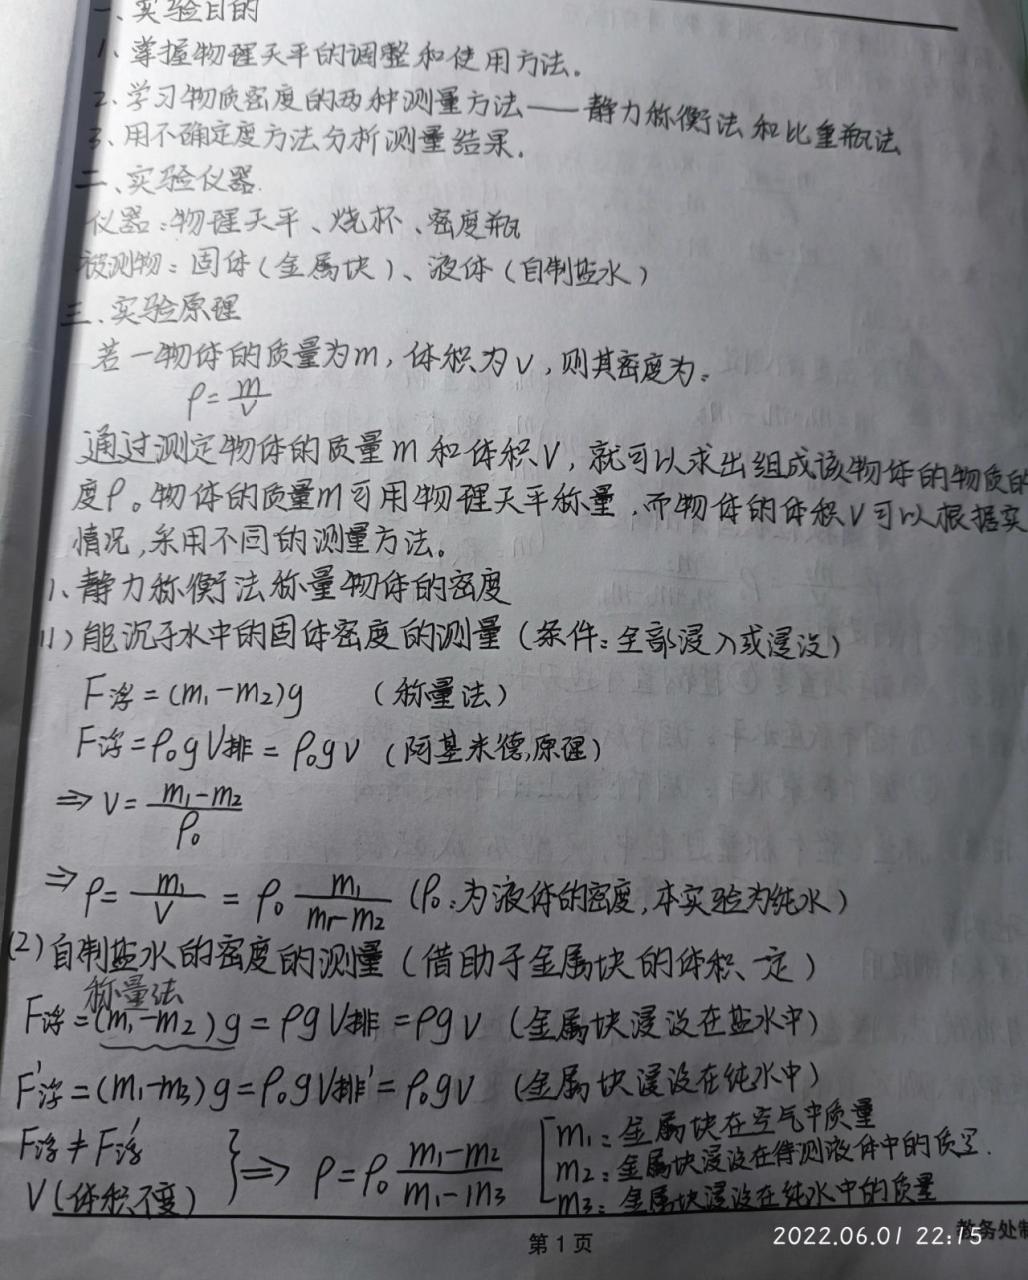 一、实验目的
1、掌握物理天平的调整和使用方法。
2、学习物质密度的两种测量方法——静力称衡法和比重瓶法
3、用不确定度方法分析测量结果。
二、实验仪器.
仪器:物理天平、烧杯、密度瓶
被测物:固体(金属块)、液体(自制盐水)
三、实验原理
若一物体的质量为m,体积为V,则其密度为:
ρ=m/V
通过测定物体的质量m和体积V,就可以求出组成该物体的物质的
度ρ。物体的质量m可用物理天平称量,而物体的体积V可以根据实
情况,采用不同的测量方法。
1、静力称衡法称量物体的密度
(1)能沉于水中的固体密度的测量(条件:全部浸入或浸没)
F浮=(m₁-m₂)g (称量法)
F浮=ρ₀gV排=ρ₀gV (阿基米德原理)
⇒V=(m₁-m₂)/ρ₀
⇒ρ=m₁/V=ρ₀ m₁/(m₁-m₂) (ρ₀:为液体的密度,本实验为纯水)
(2)自制盐水的密度的测量(借助于金属块的体积一定)
称量法
F浮=(m₁-m₂)g=ρgV排=ρgV (金属块浸没在盐水中)
F'浮=(m₁-m₃)g=ρ₀gV排'=ρ₀gV (金属块浸没在纯水中)
F浮≠F'浮
V(体积不变)
}⇒ρ=ρ₀ (m₁-m₂)/(m₁-m₃)
[m₁:金属块在空气中质量
m₂:金属块浸没在待测液体中的质量.
m₃:金属块浸没在纯水中的质量
第1页
教务处制
2022.06.01 22:15